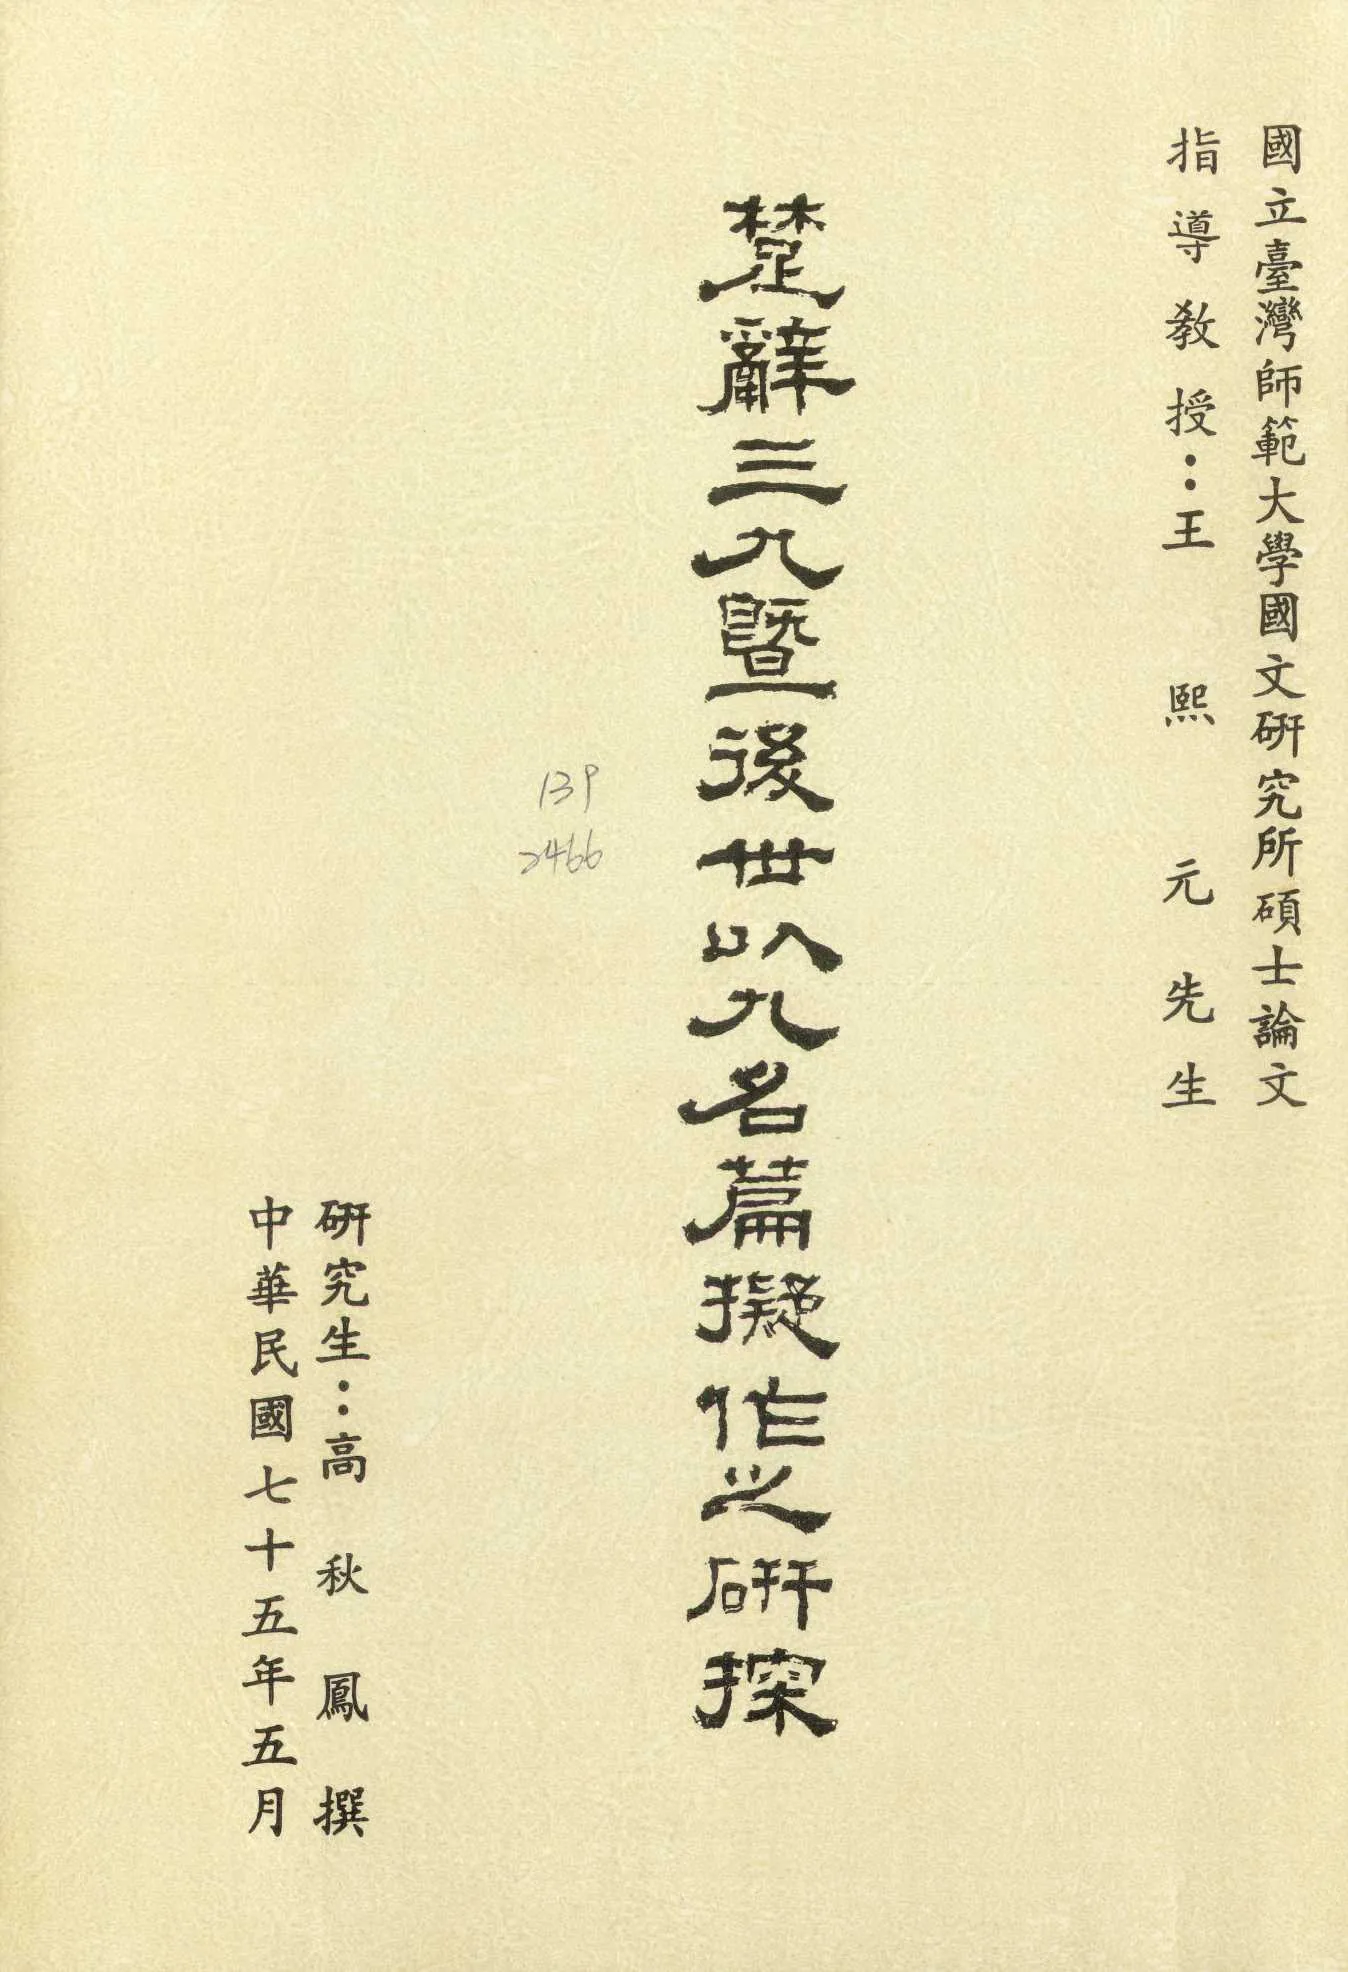 國立臺灣師範大學國文研究所碩士論文
指導教授：王熙元先生
楚辭三九暨後世以九名篇擬作之研探
139
2466
研究生：高秋鳳撰
中華民國七十五年五月